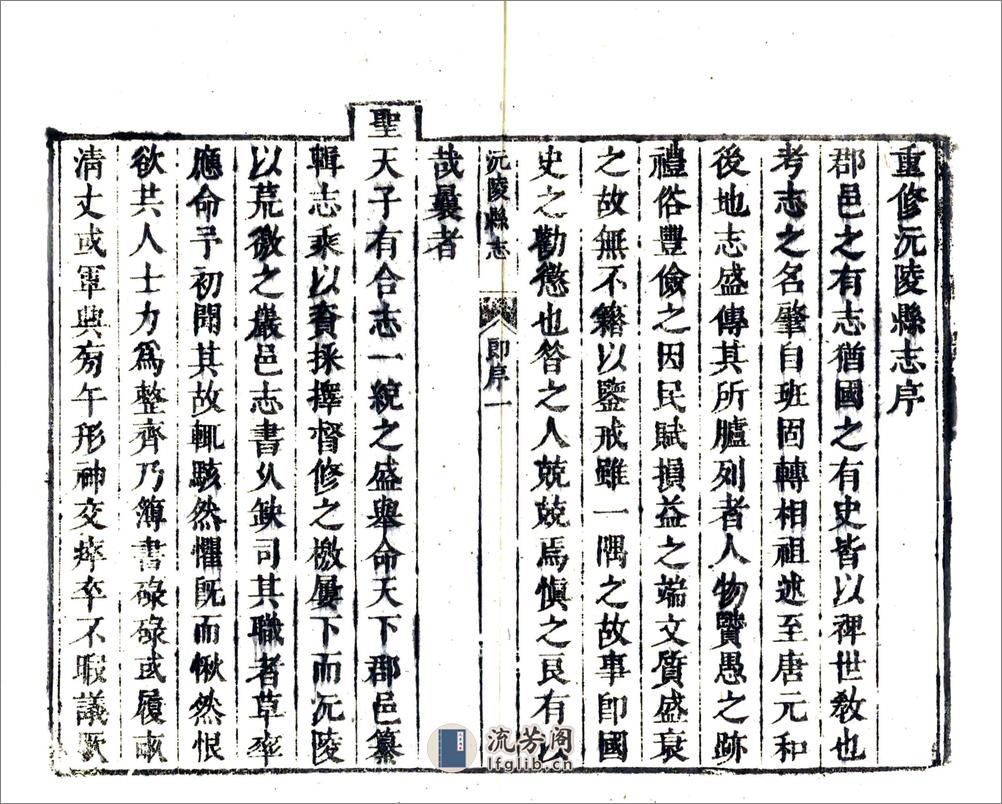 重修沅陵縣志序
郡邑之有志猶國之有史皆以裨世敎也
考志之名肇自班固轉相祖述至唐元和
後地志盛傳其所臚列者人物賢愚之跡
禮俗豐儉之因民賦損益之端文質盛衰
之故無不籍以鑒戒雖一隅之故事即國
史之勸懲也昝之人兢兢焉愼之良有以
沅陵縣志 即序一
哉曩者
聖天子有合志一統之盛舉命天下郡邑纂
輯志乘以資採擇督修之檄屢下而沅陵
以荒徼之嚴邑志書久缺司其職者草率
應命予初聞其故輒駭然懼旣而愀然恨
欲共人士力爲整齊乃簿書碌碌或履畝
清丈或軍興旁午形神交瘁卒不暇議厥
流芳阁
lfglib.cn